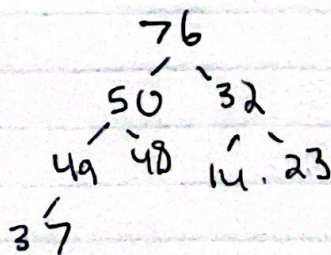 76
50 32
49 48 14 23
37